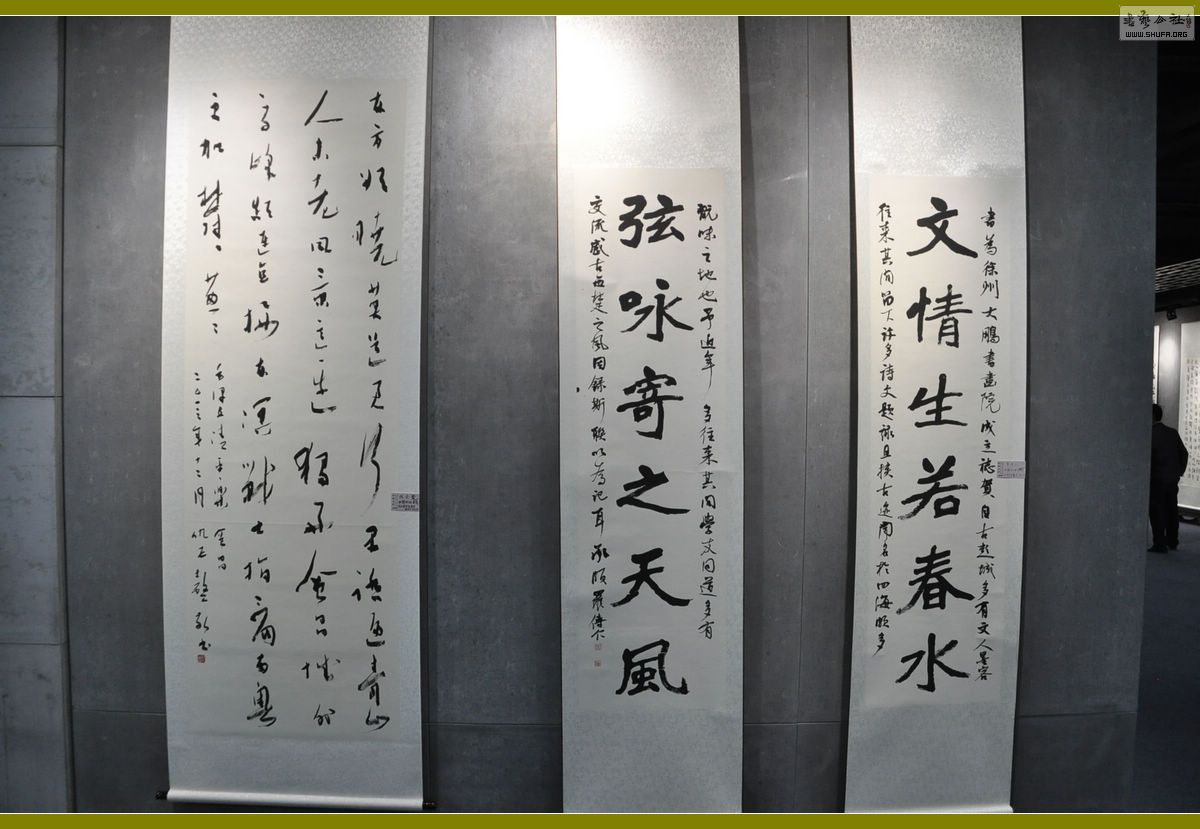 書為徐州大鵬書畫院成立誌賀自古彭城多有文人墨客
文情生若春水
往来其間留下許多詩文題詠且 古迹聞名於四海頗多
翫味之地也予近年多往来其間學文同道多有
弦咏寄之天風
交流感古西楚之風因録斯聯以為記耳
东方欲晓莫道君行早踏遍青山
人未老风景这边独好會昌城外
高峰顛連直接东溟戰士指看南粤
更加鬱々葱々
毛泽东清平樂會昌
二〇一三年十二月
書藝公社
WWW.SHUFA.ORG